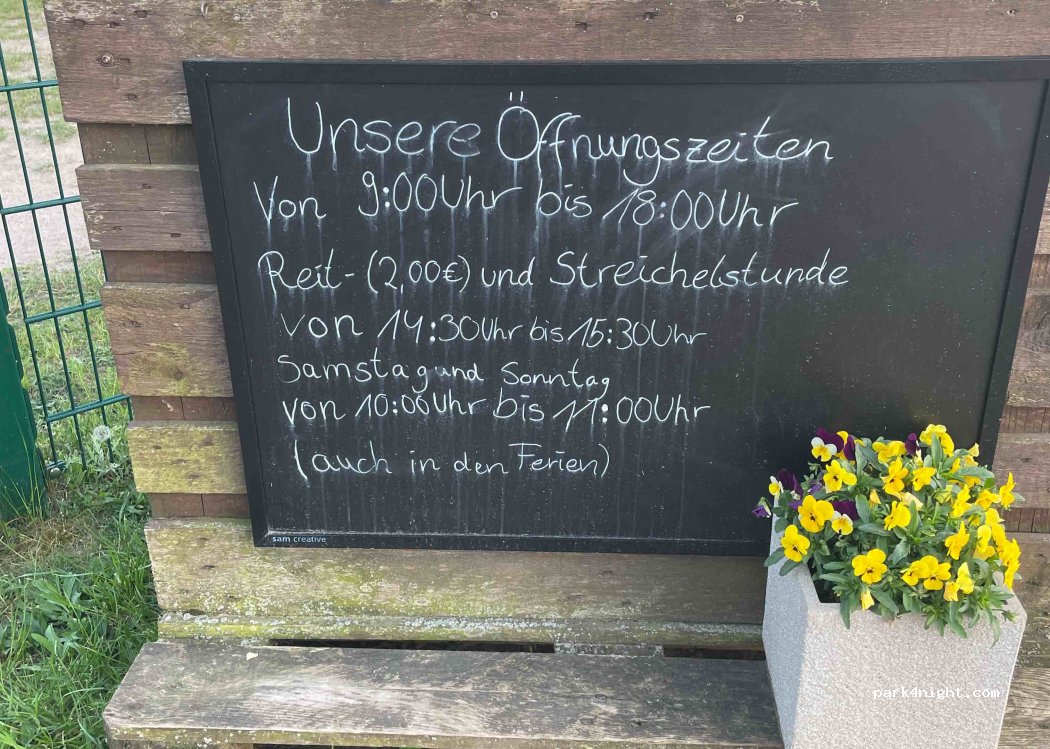 Unsere Öffnungszeiten
Von 9:00Uhr bis 18:00Uhr
Reit- (2,00€) und Streichelstunde
von 14:30Uhr bis 15:30Uhr
Samstag und Sonntag
von 10:00Uhr bis 11:00Uhr
(auch in den Ferien)
sam creative
park4night.com